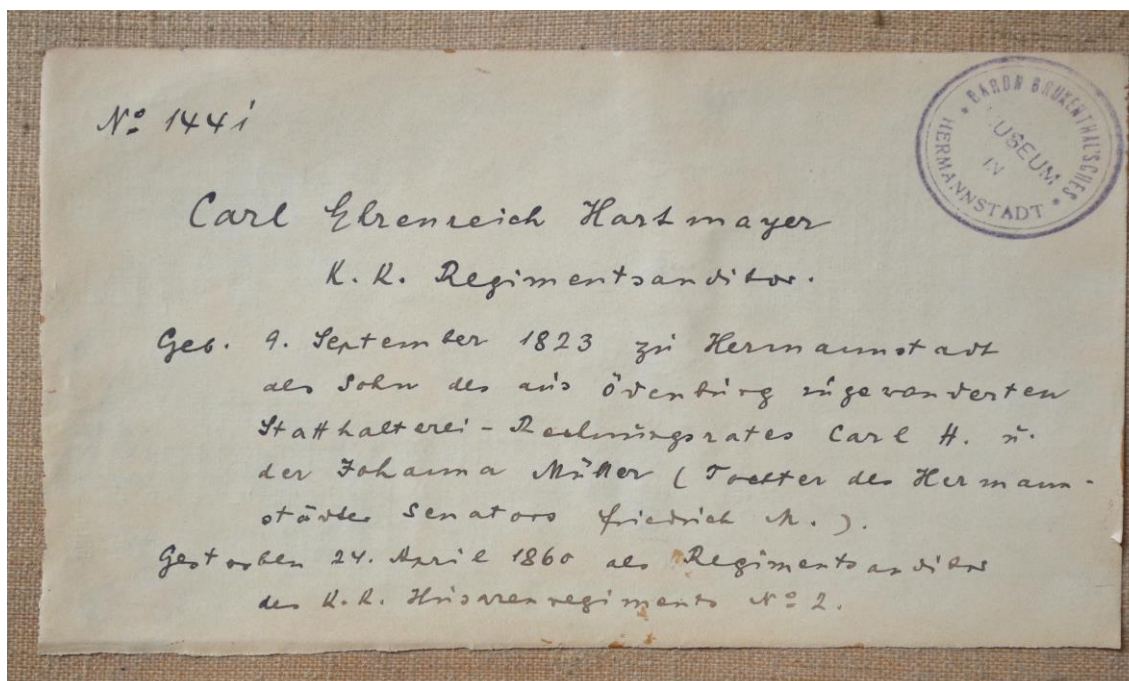 Nº 1441
BARON BRUKENTHAL'SCHES
MUSEUM
IN
HERMANNSTADT
Carl Ehrenreich Hartmayer
K. K. Regimentsauditor.
Geb. 9. September 1823 zu Hermannstadt
als Sohn des aus Ödenburg zugewanderten
Statthalterei-Rechnungsrates Carl H. u.
der Johanna Müller (Tochter des Hermann-
städter Senators Friedrich M.).
Gestorben 24. April 1860 als Regimentsauditor
des K. K. Husarenregiments Nº 2.